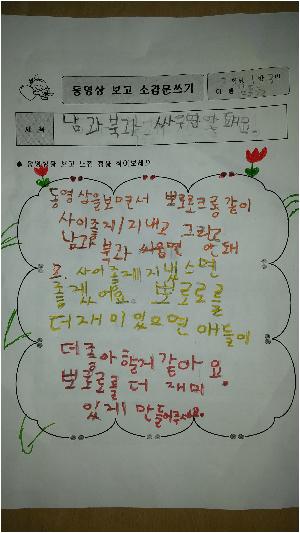 동영상 보고 소감문쓰기
제 목
남과 북과 싸우면 안 돼요.
● 동영상을 보고 느낀 점을 적어보세요
동영상을보면서 뽀로로크롱같이
사이좋게지내고 그리고
남과 북과 싸우면 안돼
요. 사이좋게지냈스면
좋겠어요. 뽀로로를
더재미있으면 애들이
더좋아할거같아요.
뽀로로를 더 재미
있게 만들어주세요.